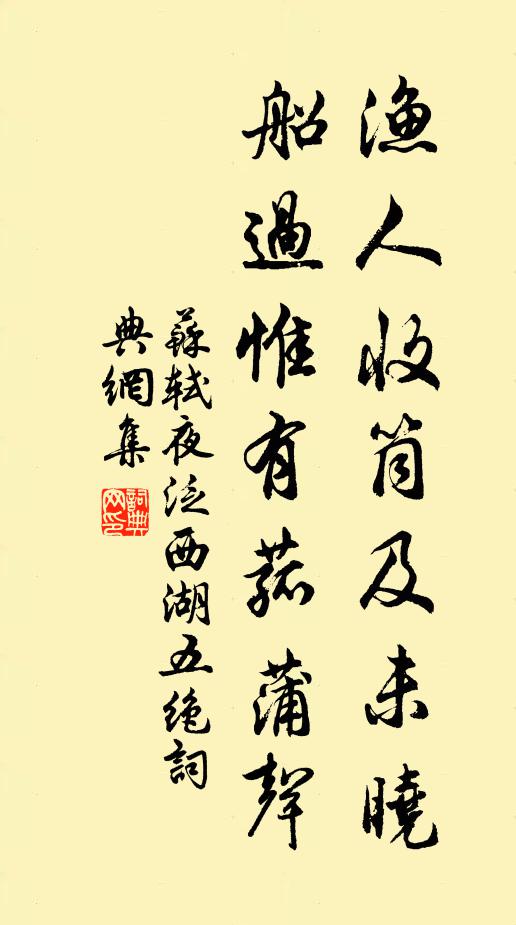 漁人收筒及未曉
船過惟有菰蒲聲
蘇軾夜泛西湖五絶詞
典網集
詞典网印